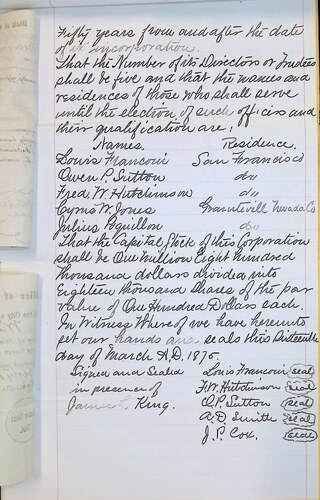 Fifty years from and after the date
of its incorporation.
That the Number of its Directors or Trustees
shall be five and that the names and
residences of those who shall serve
until the election of such officers and
their qualification are:
Names. Residence.
Louis Franconi San Francisco
Owen P. Sutton do
Fred. W. Hutchinson do
Cyrus W. Jones Grantville Nevada Co
Julius do
That the Capital Stock of this Corporation
shall be One Million Eight hundred
thousand dollars divided into
Eighteen thousand Shares of the par
value of One Hundred Dollars each.
In Witness Where of we have hereunto
set our hands and seals this
day of March A.D. 1875.
Signed and Sealed Louis Franconi seal
in presence of F.W. Hutchinson seal
James King. O.P. Sutton seal
A.D. Smith seal
J.P. Cox. seal